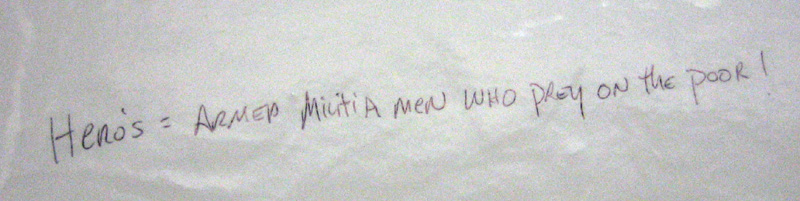 Hero's = ARMED MilitiA MEN WHO PREY ON the POOR!